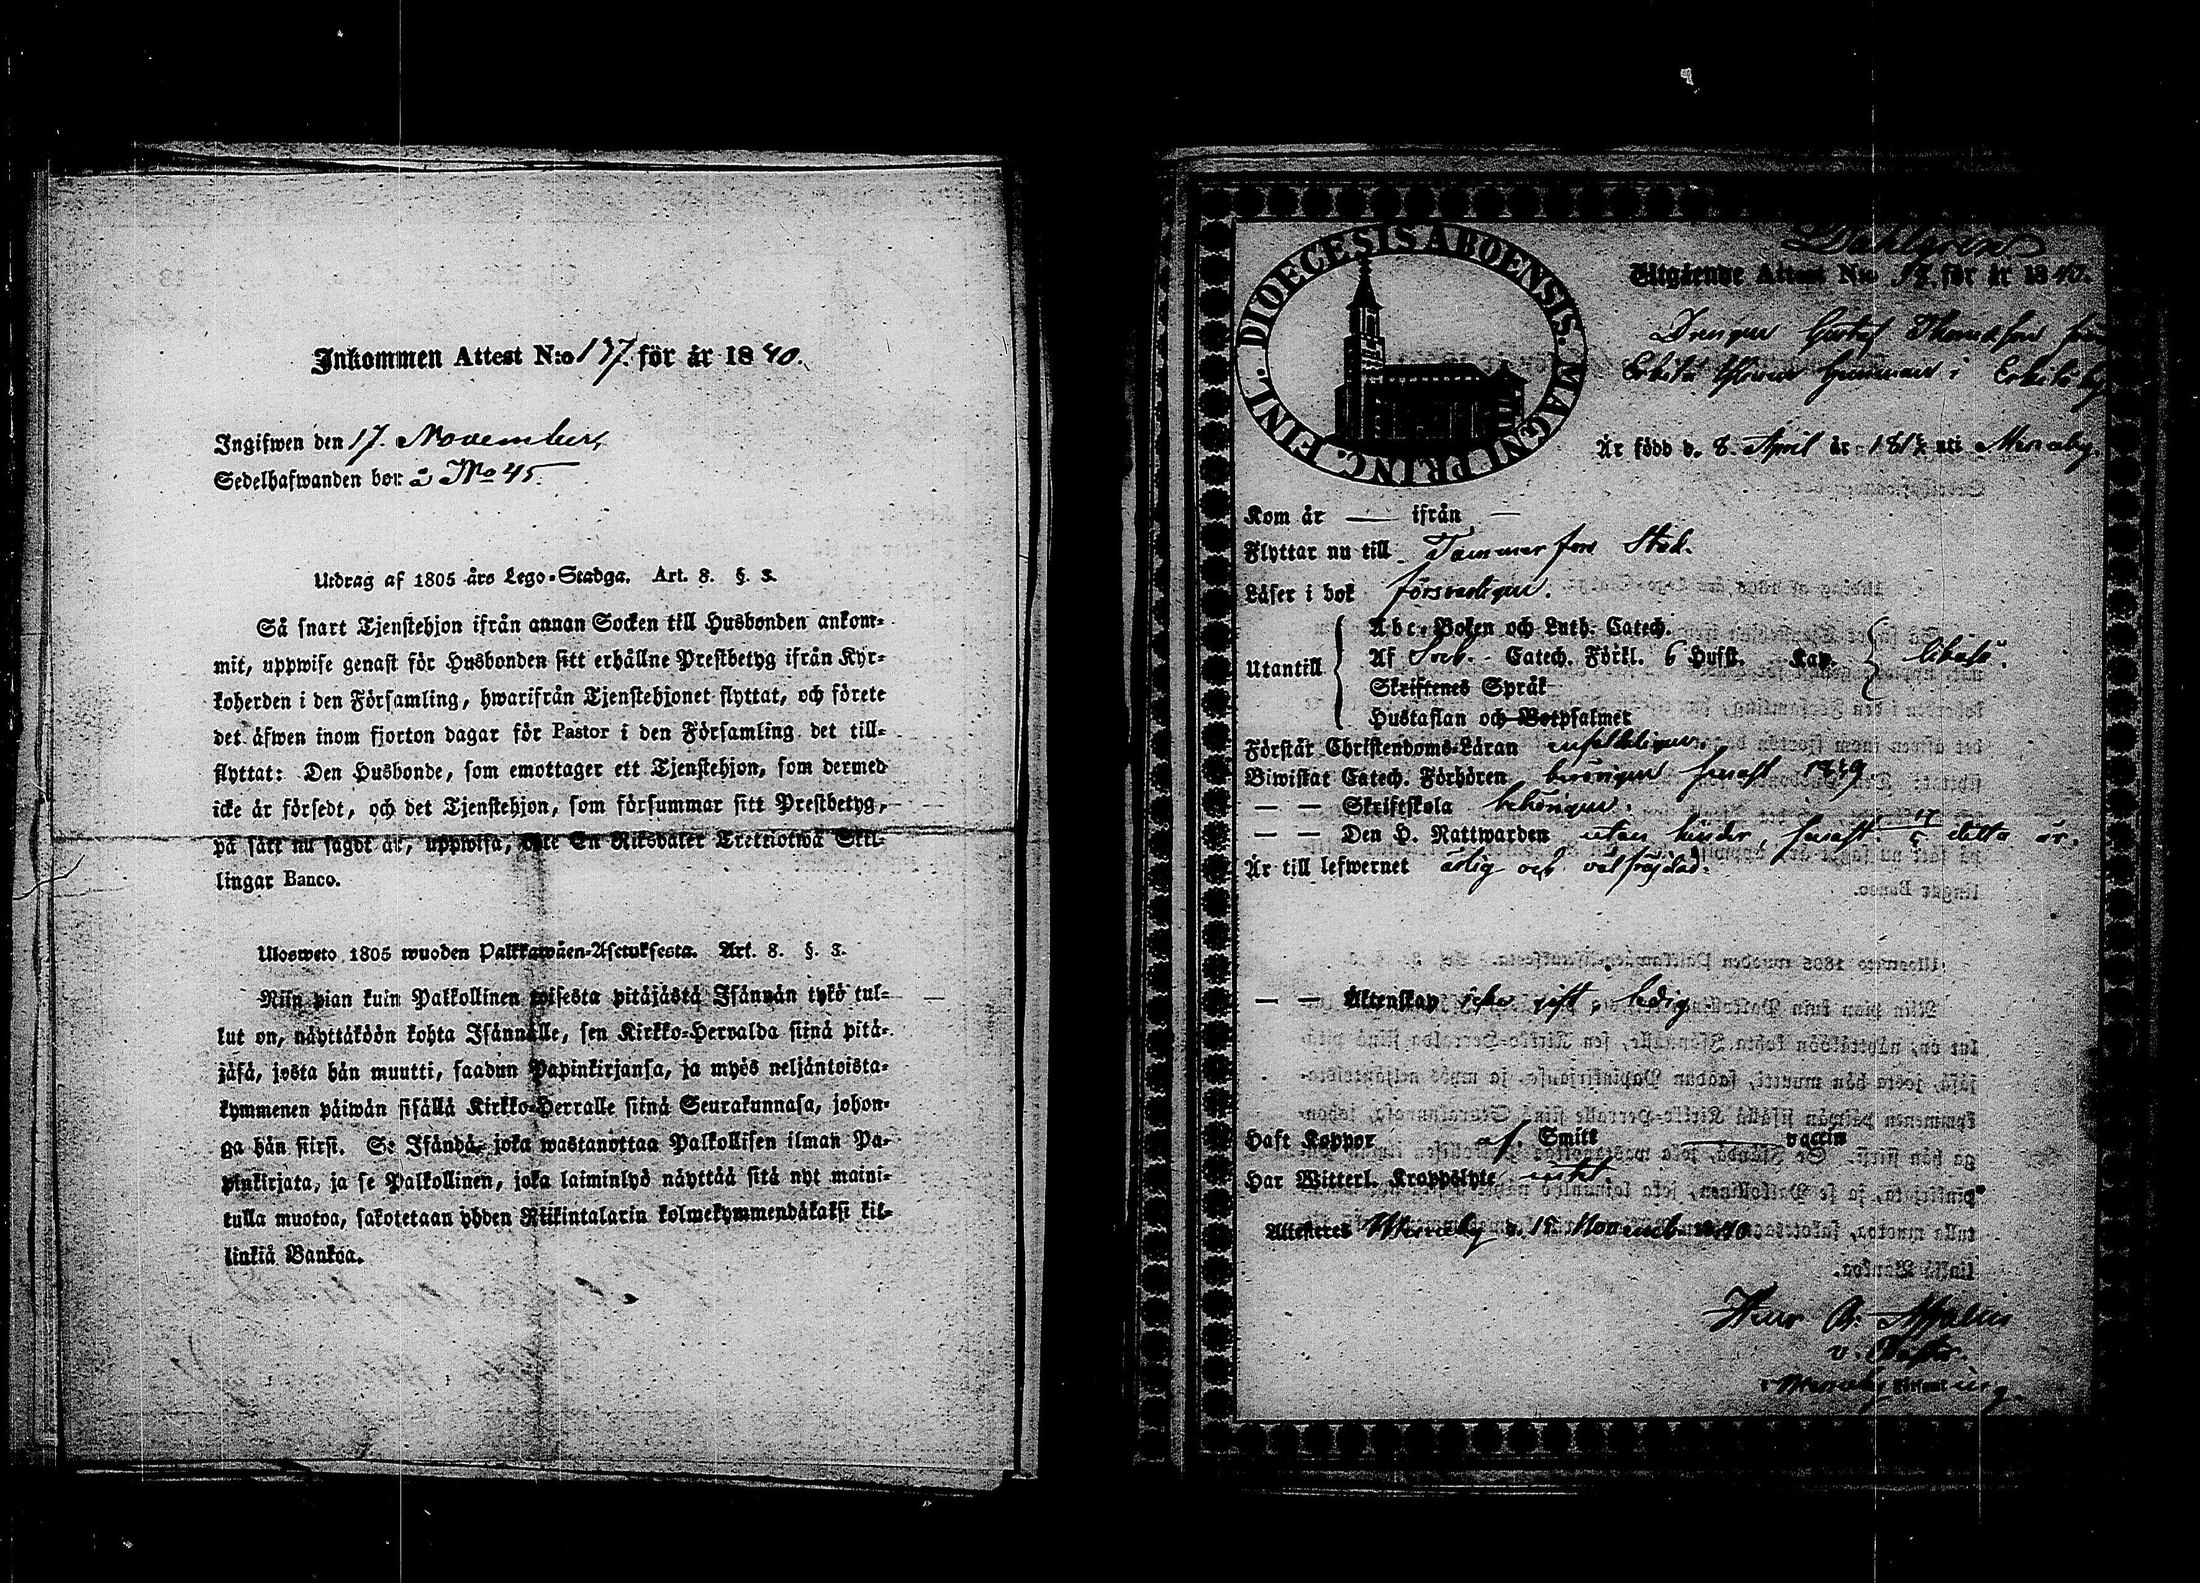 Inkommen Attest N:o 137. för år 1840.
Ingifwen den 17. November
Sedelhafwanden bor å No 45.
Utdrag af 1805 års Lego-Stadga. Art. 8. §. 3.
Så snart Tjenstehjon ifrån annan Socken till Husbonden ankom-
mit, uppwise genast för Husbonden sitt erhållne Prestbetyg ifrån Kyr-
koherden i den Församling, hwarifrån Tjenstehjonet flyttat, och förete
det äfwen inom fjorton dagar för Pastor i den Församling det till-
flyttat: Den Husbonde, som emottager ett Tjenstehjon, som dermed
icke är försedt, och det Tjenstehjon, som försummar sitt Prestbetyg,
på sätt nu sagdt är, uppwisa, böte En Riksdaler Trettiotwå Skil-
lingar Banco.
Ulosweto 1805 wuoden Palkkawäen-Asetuksesta. Art. 8. §. 3.
Niin pian kuin Palkollinen toisesta pitäjästä Isännän tykö tul-
lut on, näyttäköön kohta Isännälle, sen Kirkko-Herralda siinä pitä-
jäsä, josta hän muutti, saadun Papinkirjansa, ja myös neljäntoista-
kymmenen päiwän sisällä Kirkko-Herralle siinä Seurakunnasa, johon-
ga hän siirsi. Se Isändä, joka wastanottaa Palkollisen ilman Pa-
pinkirjata, ja se Palkollinen, joka laiminlyö näyttää sitä nyt maini-
tulla muotoa, sakotetaan yhden Riikintalarin kolmekymmendäkaksi kil-
linkiä Bankoa.
DIOECESIS ABOENSIS. MAGNI PRINC. FINL.
Dahlgren
Utgående Attest N:o 17. för år 1840.
Drengen Gustaf Thomasson från
Erkilä i Erkilä by
Är född d. 8. April år uti Messuby.
Kom år — ifrån —
Flyttar nu till Tammerfors Stad.
Läser i bok försvarligen.
Utantill
Abc-Boken och Luth. Catech.
Af Sveb. Catech. Förkl. 6 Hufst. Kap.
Skriftenes Språk
Hustaflan och Botpsalmer
Förstår Christendoms-Läran enfaldeligen.
Biwistat Catech. Förhören behörigen senast
— — Skriftskola behörigen.
— — Den H. Nattwarden utan hinder, senast detta år.
Är till lefwernet ärlig och välfrejdad.
— — Äktenskap icke gift, ledig
Haft Koppor af Smitt — vaccin
Har Witterl. Krappölyte intet.
Attesteras Messuby d. 15 November 1840.
v. Pastor.
i Messuby Församling.